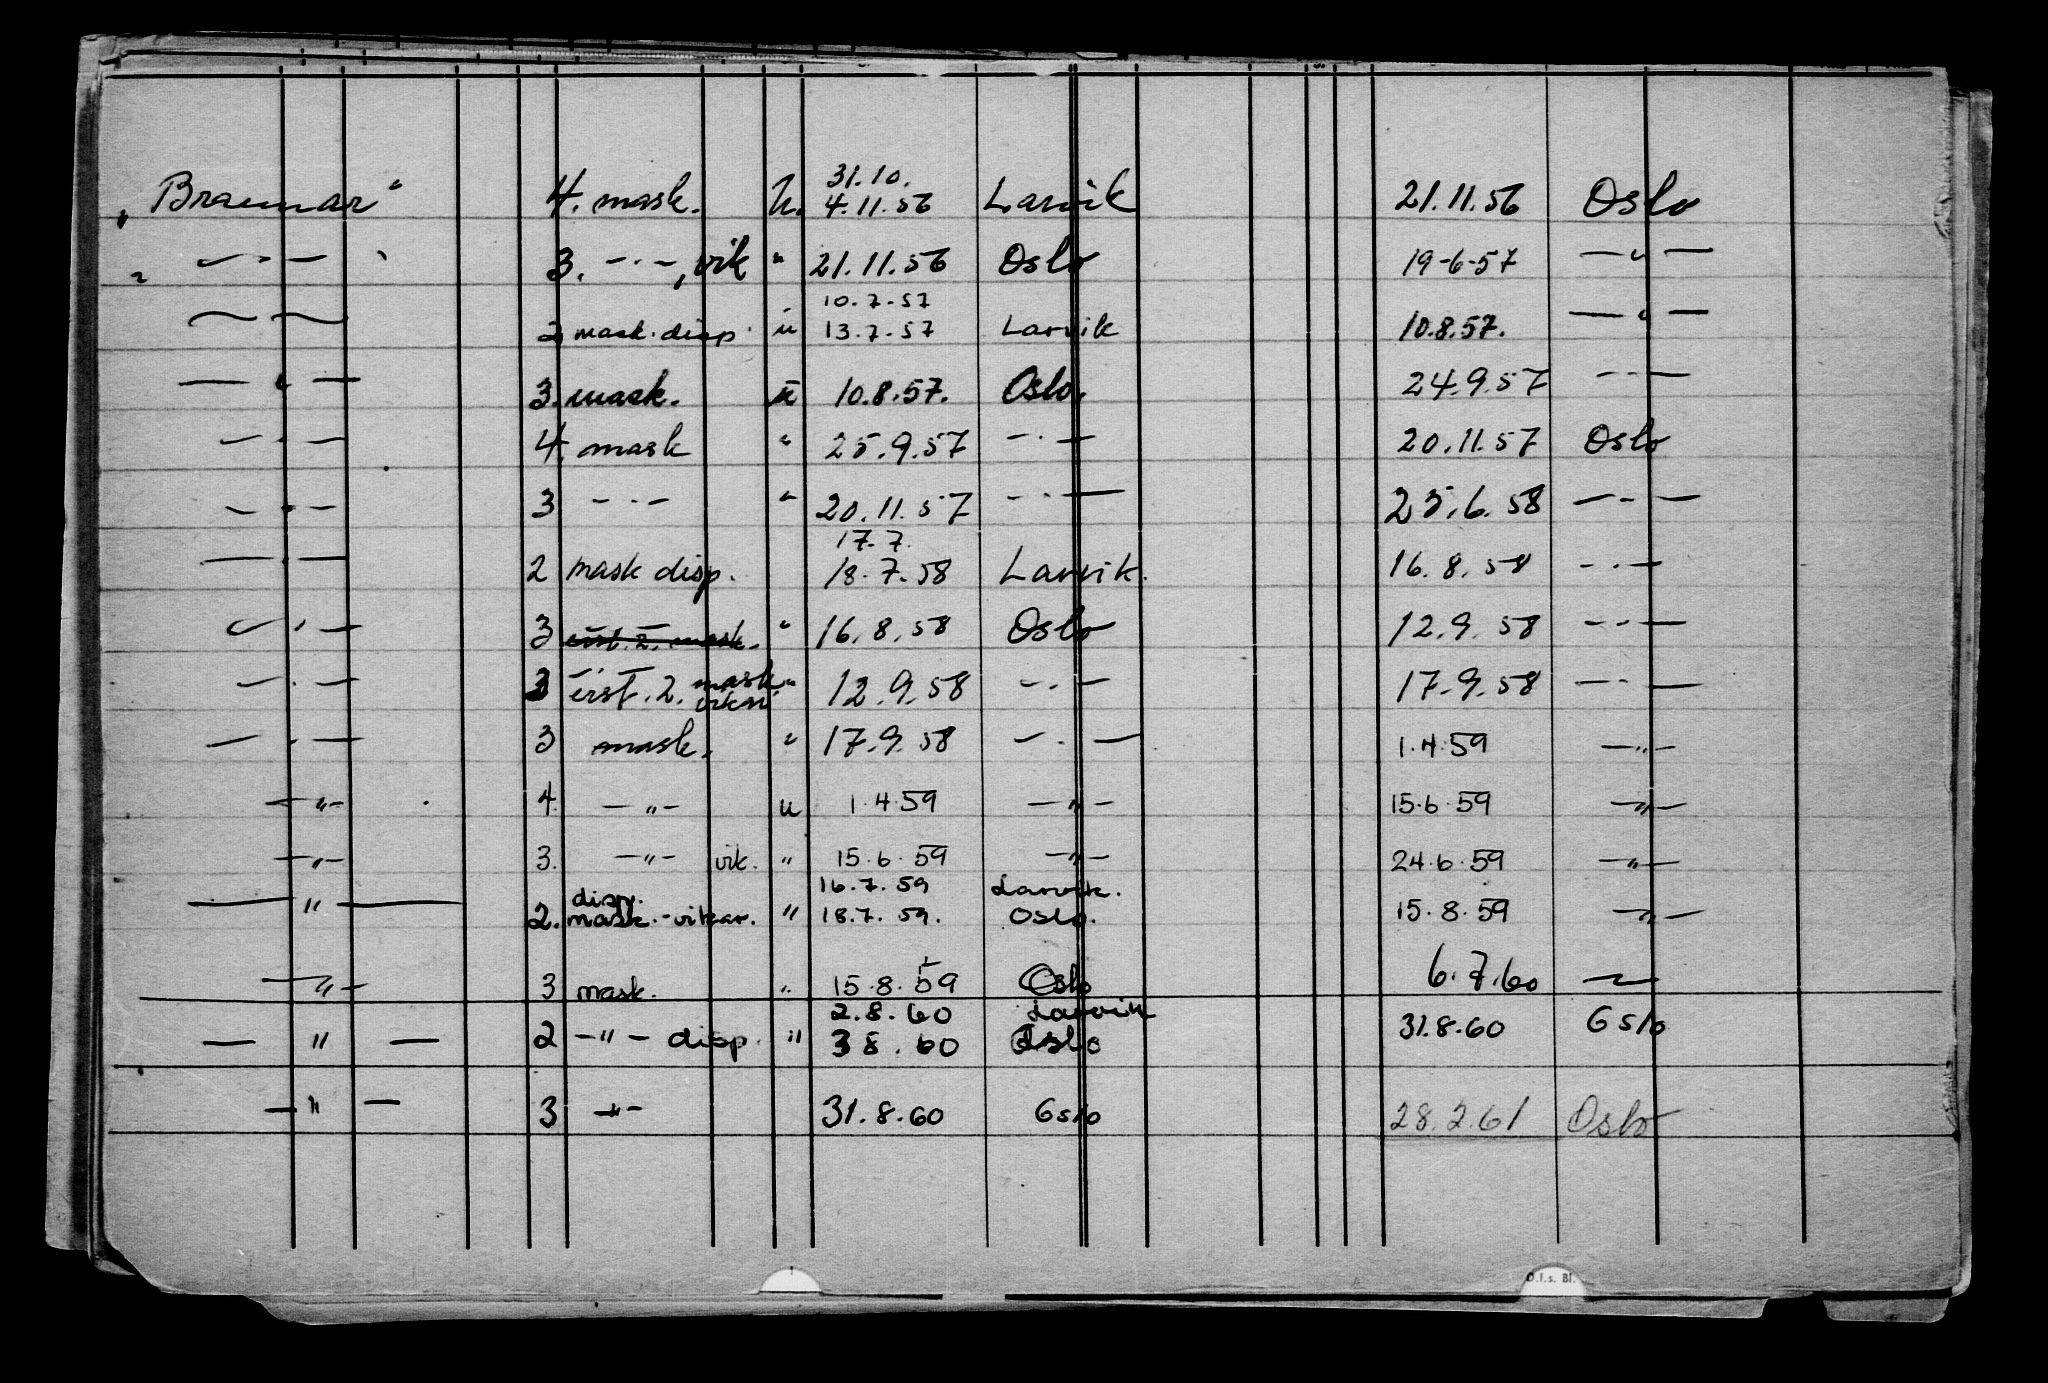 „Braemar“ 4. mask. U. 31.10. 4.11.56 Larvik 21.11.56 Oslo
" — " — 3. — " —, vik " 21.11.56 Oslo 19-6-57 — " —
— — 2 mask. disp. u 10.7.57 13.7.57 Larvik 10.8.57. — " —
— " — 3. mask. u 10.8.57. Oslo. 24.9.57 — " —
— " — 4. mask " 25.9.57 — " — 20.11.57 Oslo
— " — 3 — " — " 20.11.57 — " — 25.6.58 — " —
— " — 2 mask disp. 17.7. 18.7.58 Larvik. 16.8.58 — " —
— " — 3 erst. 2. mask. " 16.8.58 Oslo 12.9.58 — " —
— " — 3 erst. 2. mask. vikar " 12.9.58 — " — 17.9.58 — " —
— " — 3 mask. " 17.9.58 — " — 1.4.59 — " —
— " — 4. — " — u 1.4.59 — " — 15.6.59 — " —
— " — 3. — " — vik. " 15.6.59 — " — 24.6.59 — " —
— " — 2. disp. mask.-vikar. " 16.7.59 Larvik. 18.7.59. Oslo. 15.8.59 — " —
— " — 3 mask. " 15.8.59 Oslo 6.7.60 —
— " — 2 — " — disp. " 2.8.60 Larvik 3 8.60 Oslo 31.8.60 Oslo
— " — 3 — " — 31.8.60 Oslo 28.2.61 Oslo
O.f.s. Bl.